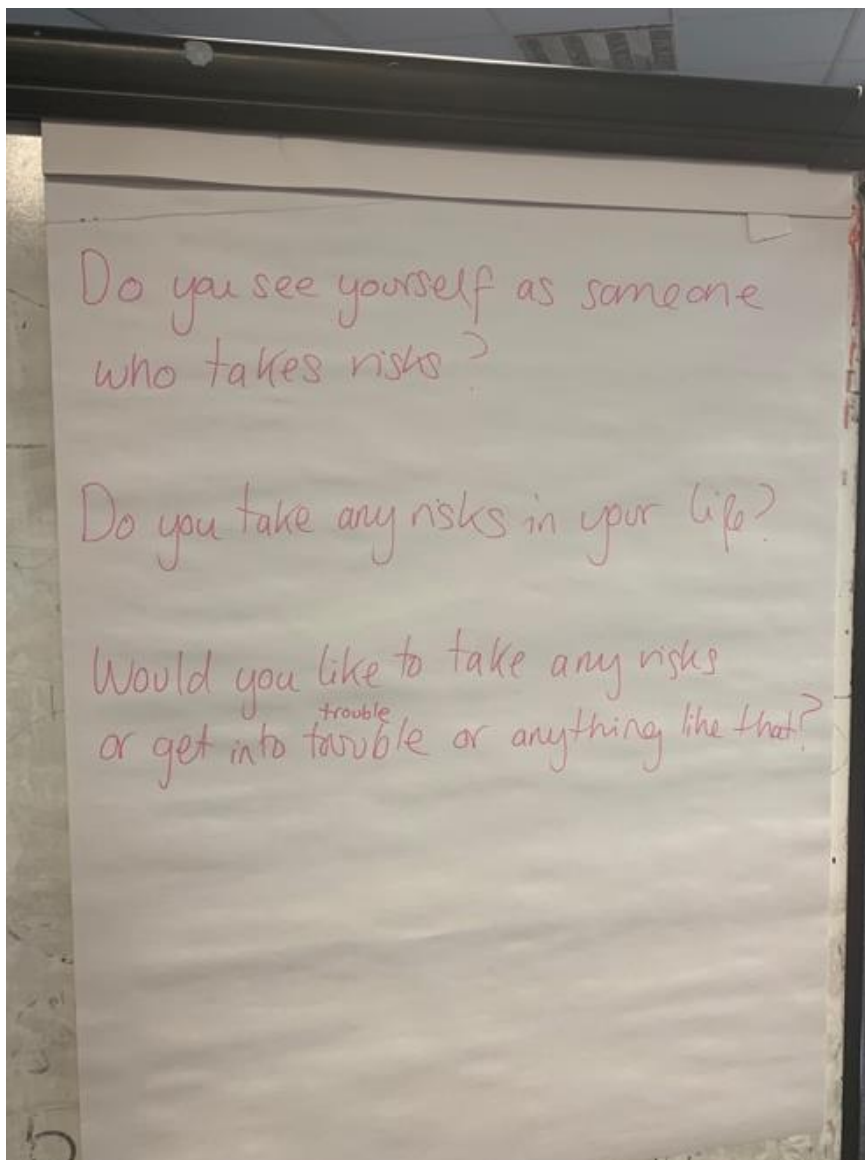 Do you see yourself as someone
who takes risks?
Do you take any risks in your life?
Would you like to take any risks
trouble
or get into touble or anything like that?